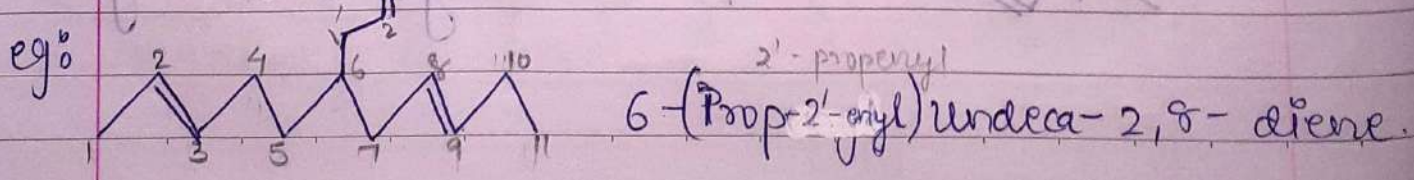 1' 2'
eg:
2 4 6 8 10
1 3 5 7 9 11
2'-propenyl
6-(Prop-2'-enyl)Undeca-2,8-diene.